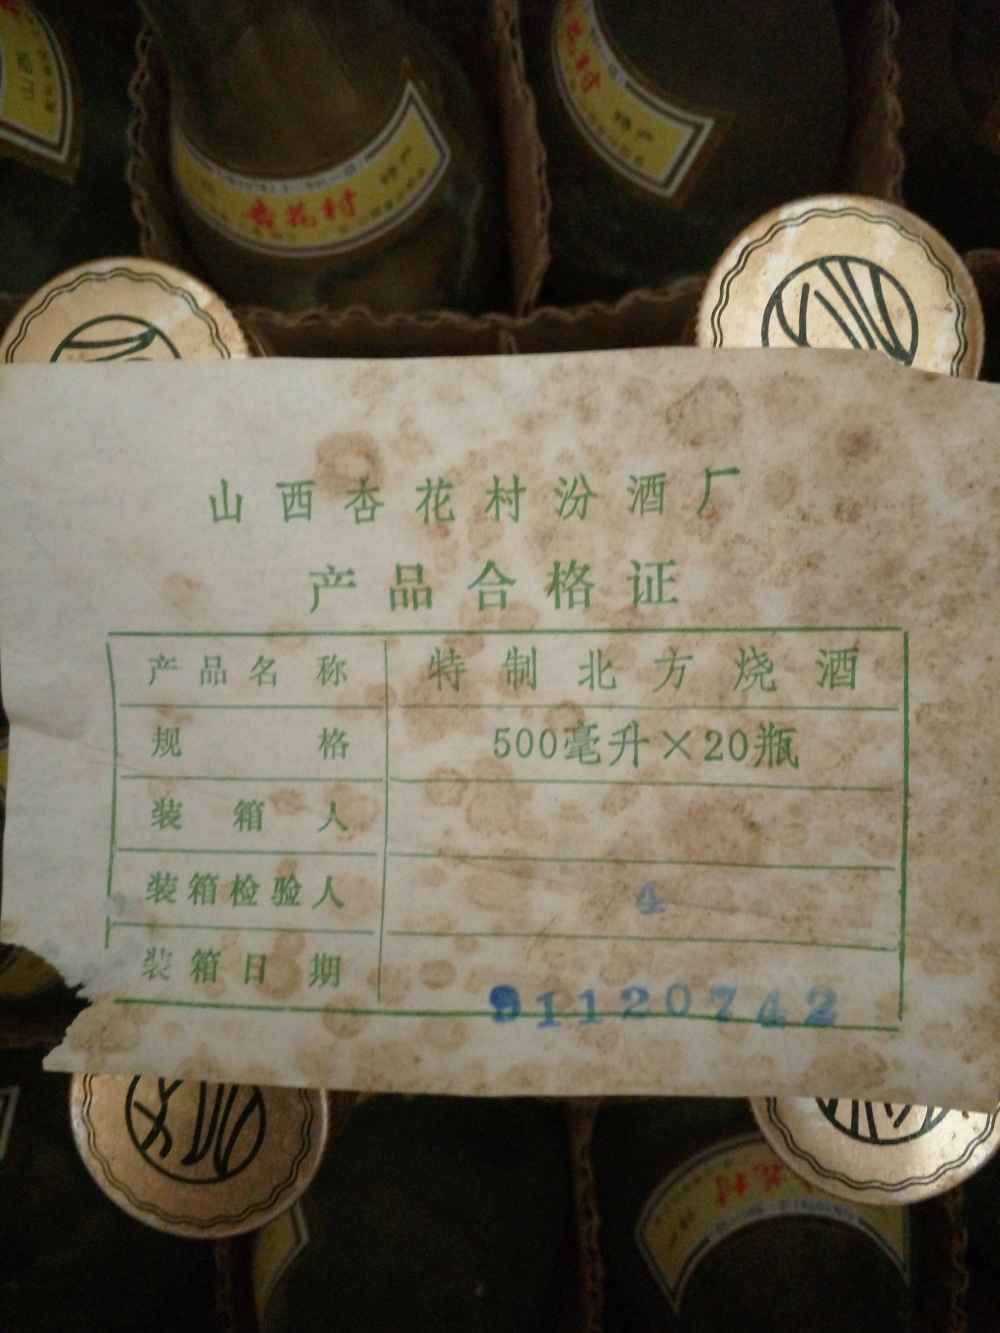 杏花村
特产
村
特产
山西杏花村汾酒厂
产品合格证
产品名称 特制北方烧酒
规格 500毫升×20瓶
装箱人
装箱检验人 4
装箱日期 91120742